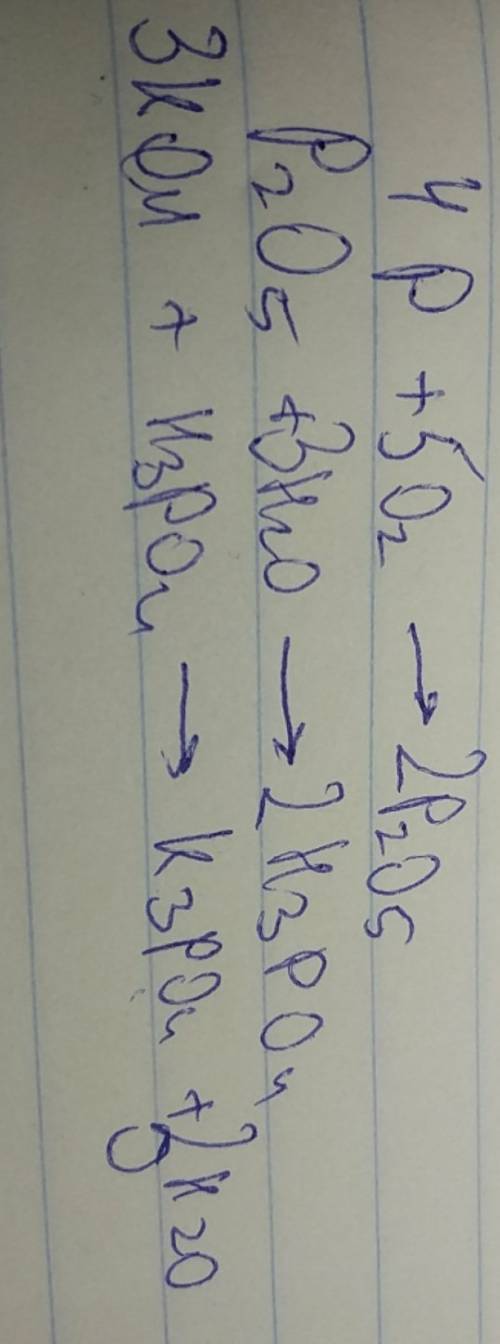 4P + 5O2 → 2P2O5
P2O5 + 3H2O → 2H3PO4
3KOH + H3PO4 → K3PO4 + 3H2O